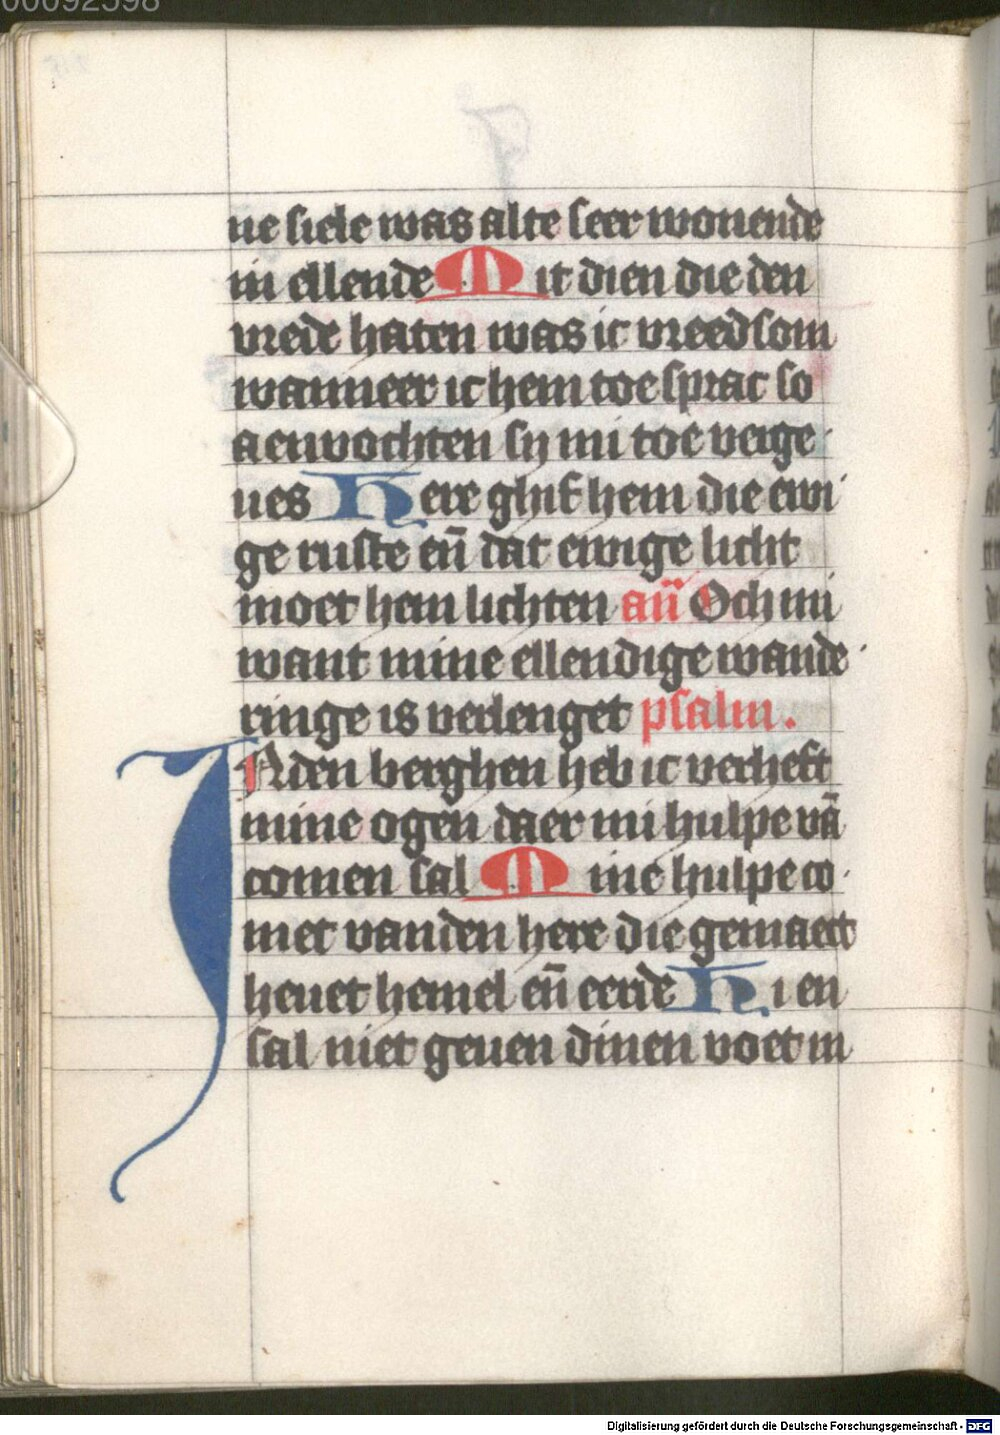 00092598
ne siele was alte seer wonende
in ellende Mit dien die den
vrede haten was ic vreedsom
wanneer ic hem toe sprac so
aenvochten sy mi toe verge
ues Here ghif hem die ewi
ge ruste eñ dat ewige licht
moet hem lichten añ Och mi
want mine ellendige wande
ringe is verlenget psalm.
INden berghen heb ic verheft
mine ogen daer mi hulpe vā
comen sal Mine hulpe co
met vanden here die gemaect
heuet hemel eñ eerde Hi en
sal niet geuen dinen voet in
Digitalisierung gefördert durch die Deutsche Forschungsgemeinschaft - DFG